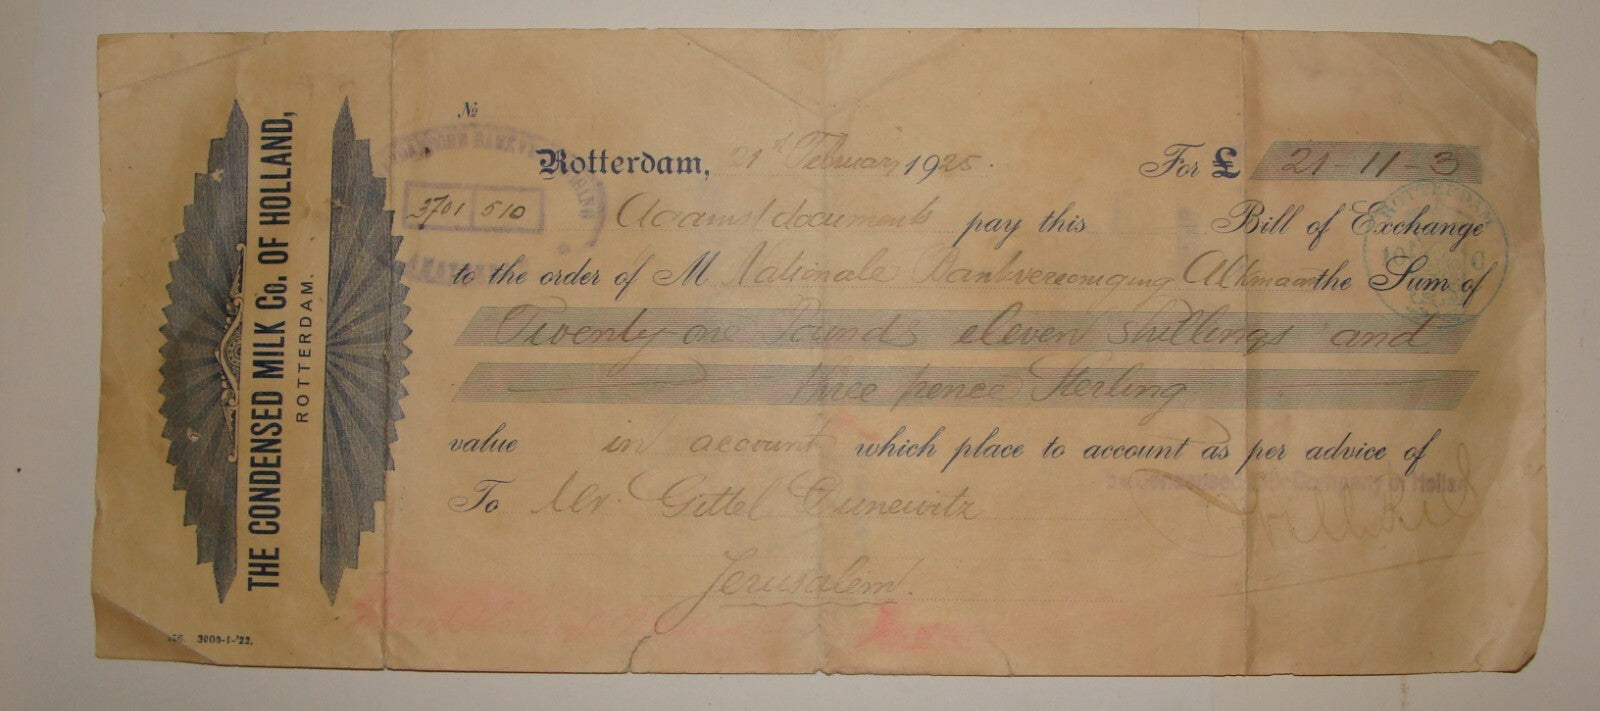 THE CONDENSED MILK Co. OF HOLLAND,
ROTTERDAM.
No
Rotterdam, 21st February 1925. For £ 21-11-3
3701 510
Against documents pay this Bill of Exchange
to the order of M Nationale Bankvereeniging Alkmaar the Sum of
Twenty one Pounds eleven shillings and
three pence Sterling
value in account which place to account as per advice of
To Mr. Gittel Dunewitz
Jerusalem.
ROTTERDAM
3000-1-'22.